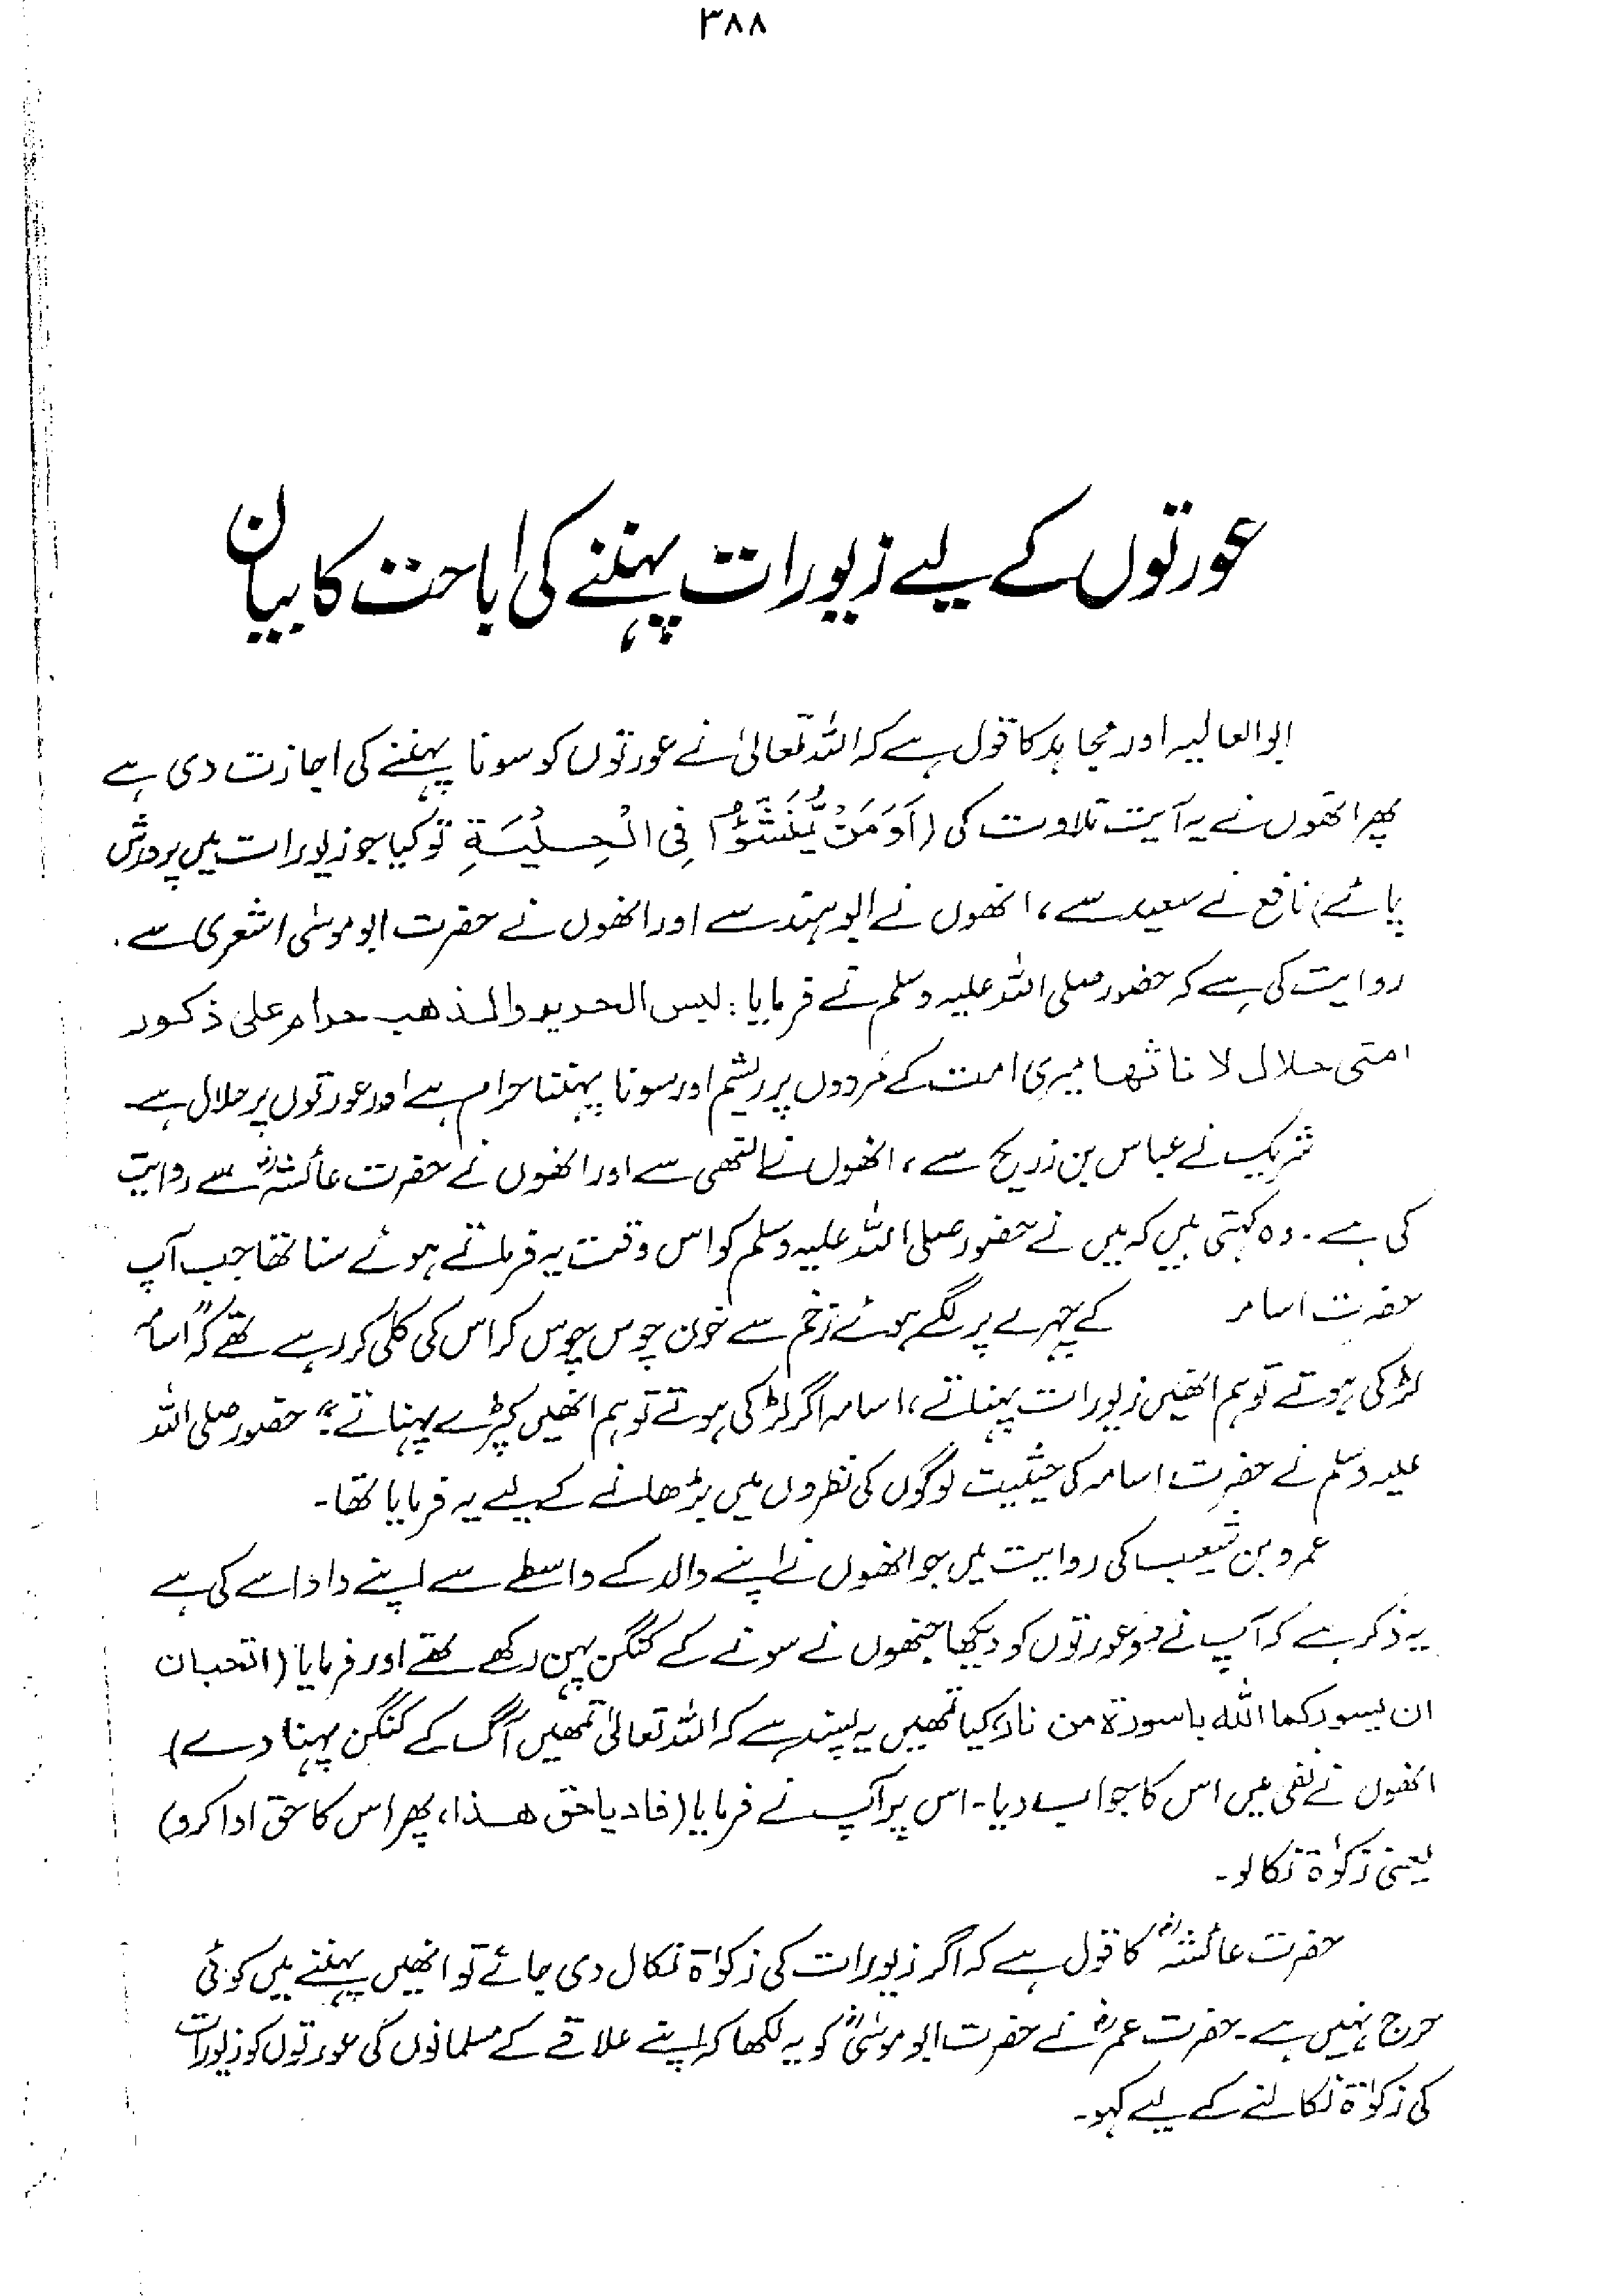 ۳۸۸
عورتوں کے لیے زیورات پہننے کی اباحت کا بیان
ابوالعالیہ اور مجاہد کا قول ہے کہ اللہ تعالیٰ نے عورتوں کو سونا پہننے کی اجازت دی ہے
پھر انھوں نے یہ آیت تلاوت کی (اَوَمَنْ یُّنَشَّؤُا فِی الْحِلْیَةِ تو کیا جو زیورات میں پرورش
پائے) نافع نے سعید سے، انھوں نے ابو ہند سے اور انھوں نے حضرت ابو موسٰی اشعری سے۔
روایت کی ہے کہ حضور صلی اللہ علیہ وسلم نے فرمایا: لبس الحریر والذھب حرام علی ذکور
امتی حلال لاناثھا میری امت کے مردوں پر ریشم اور سونا پہننا حرام ہے اور عورتوں پر حلال ہے۔
شریک نے عباس بن زریح سے، انھوں نے البہی سے اور انھوں نے حضرت عائشہؓ سے روایت
کی ہے۔ وہ کہتی ہیں کہ میں نے حضور صلی اللہ علیہ وسلم کو اس وقت یہ فرماتے ہوئے سنا تھا جب آپ
حضرت اسامہ کے چہرے پر لگے ہوئے زخم سے خون چوس چوس کر اس کی کلی کر رہے تھے کہ "اسامہ
لڑکی ہوتے تو ہم انھیں زیورات پہناتے، اسامہ اگر لڑکی ہوتے تو ہم انھیں کپڑے پہناتے"۔ حضور صلی اللہ
علیہ وسلم نے حضرت اسامہ کی حیثیت لوگوں کی نظروں میں بڑھانے کے لیے یہ فرمایا تھا۔
عمرو بن شعیب کی روایت میں جو انھوں نے اپنے والد کے واسطے سے اپنے دادا سے کی ہے
یہ ذکر ہے کہ آپ نے دو عورتوں کو دیکھا جنھوں نے سونے کے کنگن پہن رکھے تھے اور فرمایا (اتحبان
ان یسورکما اللہ باسورة من نار، کیا تمھیں یہ پسند ہے کہ اللہ تعالیٰ تمھیں آگ کے کنگن پہنا دے)
انھوں نے نفی میں اس کا جواب دیا۔ اس پر آپ نے فرمایا (فادیا حق ھذا، پھر اس کا حق ادا کرو)
یعنی زکوٰة نکالو۔
حضرت عائشہؓ کا قول ہے کہ اگر زیورات کی زکوٰة نکال دی جائے تو انھیں پہننے میں کوئی
حرج نہیں ہے۔ حضرت عمرؓ نے حضرت ابو موسٰیؓ کو یہ لکھا کہ اپنے علاقے کے مسلمانوں کی عورتوں کو زیورات
کی زکوٰة نکالنے کے لیے کہو۔